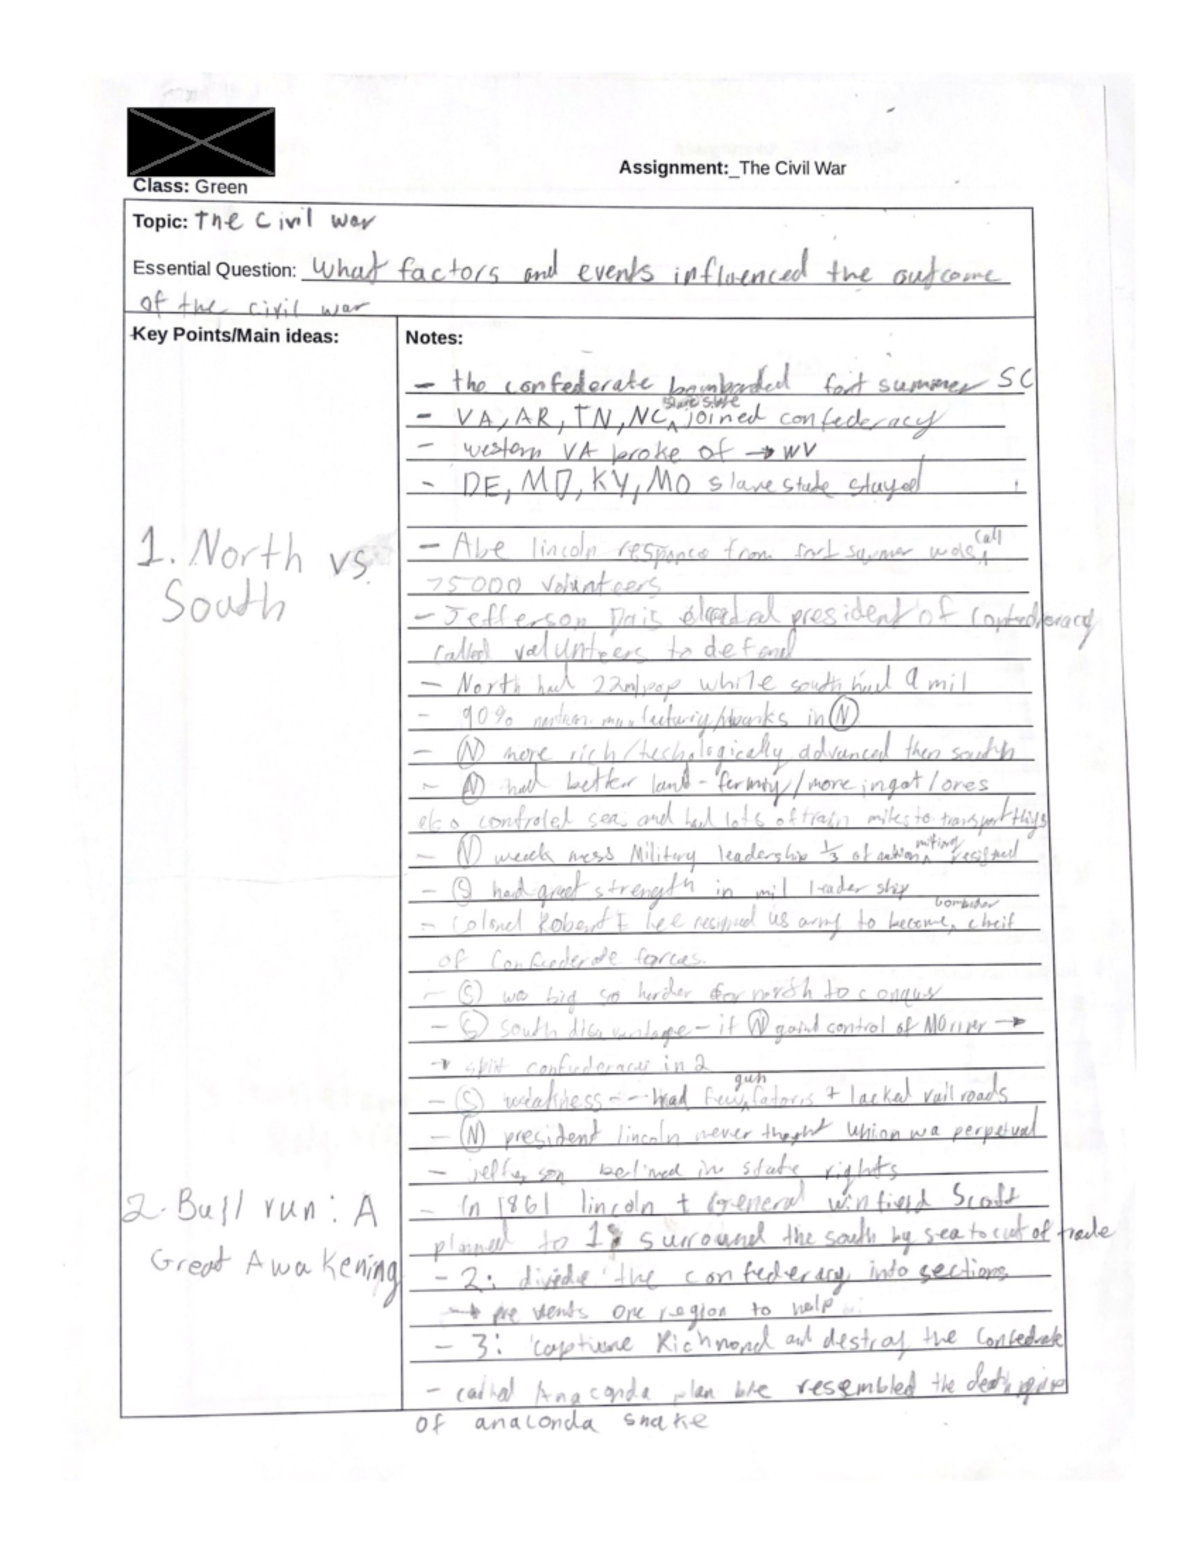 Assignment:_The Civil War
Class: Green
Topic: The Civil war
Essential Question: What factors and events influenced the outcome
of the civil war
Key Points/Main ideas:
Notes:
- the confederate bombarded fort summer SC
- VA, AR, TN, NC, slave state joined confederacy
- western VA broke of → WV
- DE, MD, KY, MO slave state stayed
1. North vs
South
- Abe lincoln responce from fort summer was call
75000 volunteers
- Jefferson president of confederacy
called volunteers to defend
- North had 22mil pop while south had 9 mil
- 90% in (N)
- (N) more rich/techologically advanced then south
- (N) had better land - /more ingot/ores
also controled sea and had lots of train miles to transport
- (N) Military leadership 1/3 of resigned
- (S) had great strength in mil leader ship
- Colonel Robert E Lee resigned us army to become, cheif
of forces.
- (S) wa big so harder for north to conquer
- (S) south - if (N) control of MO river →
→ split in 2
- (S) weakness - had few gun + lacked rail roads
- (N) president lincoln never thoght Union wa perpetual
- in state rights
2. Bull run: A
Great Awakening
- In 1861 lincoln + General winfield Scott
planned to 1: surround the south by sea to cut of trade
- 2: divide the confederacy into sections
→ pre vents one region to help
- 3: Richmond and destroy the
- Anaconda plan resembled the death
of anaconda snake